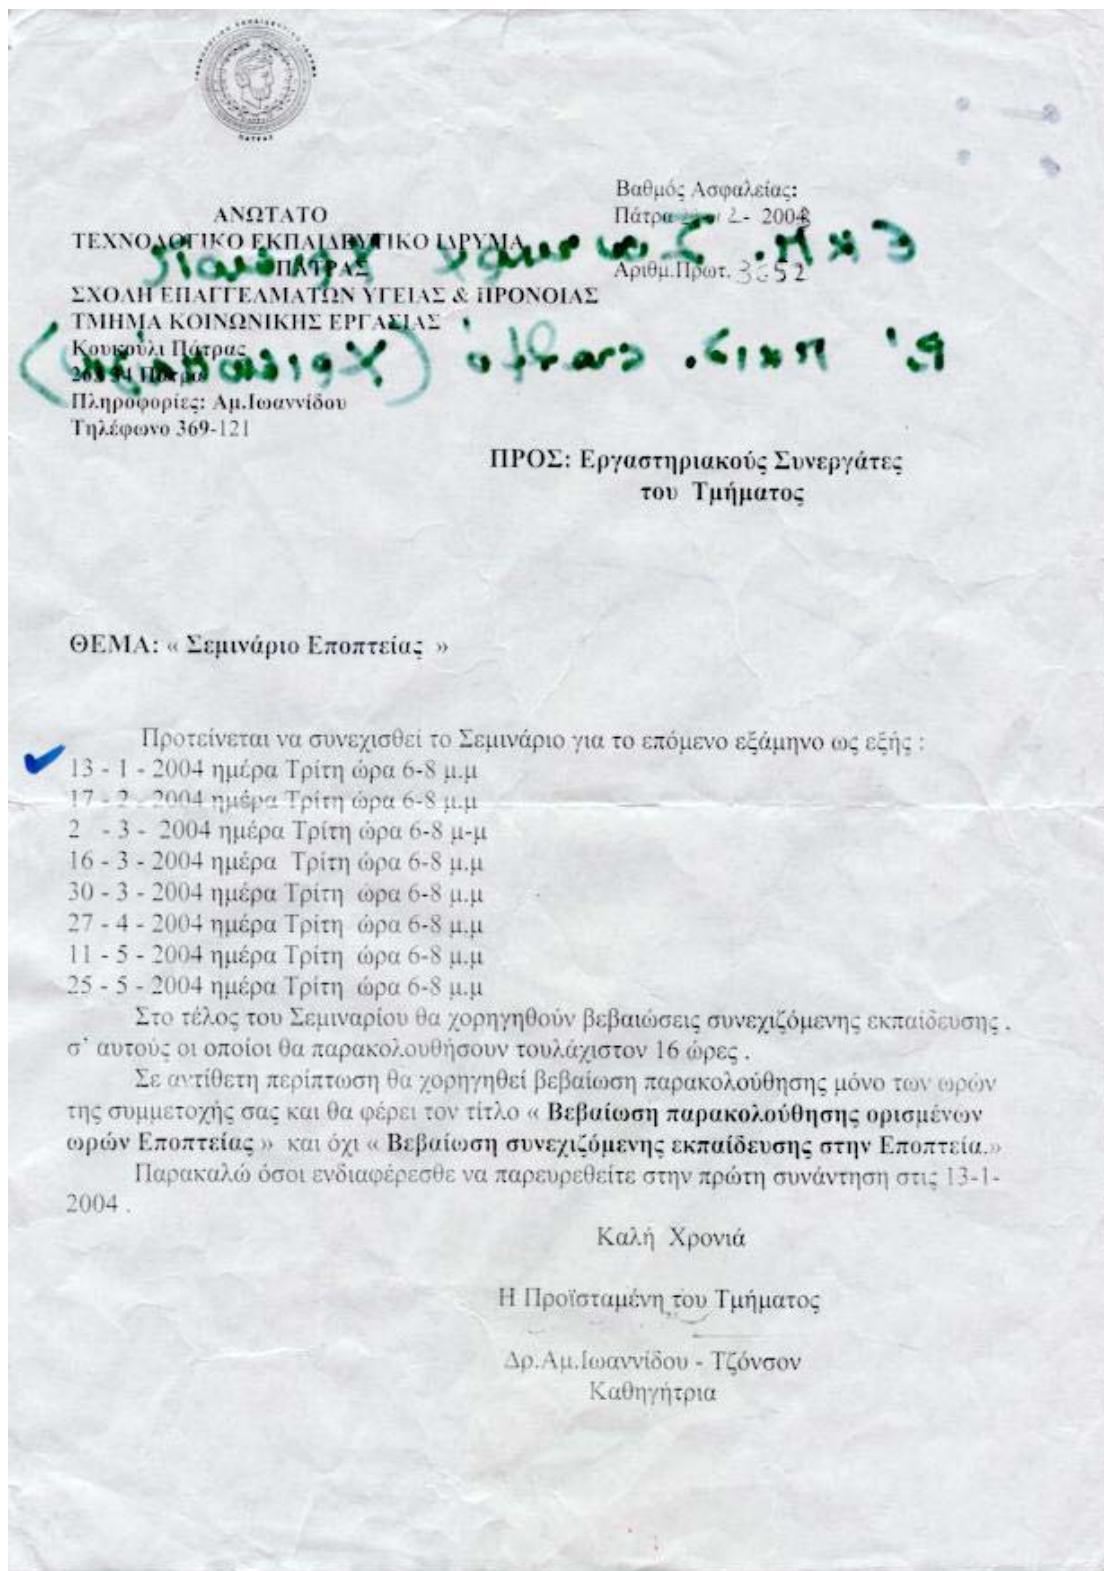 ΠΑΤΡΑΣ
Βαθμός Ασφαλείας:
Πάτρα 2- 2003
Αριθμ.Πρωτ. 3652
ΑΝΩΤΑΤΟ
ΤΕΧΝΟΛΟΓΙΚΟ ΕΚΠΑΙΔΕΥΤΙΚΟ ΙΔΡΥΜΑ
ΠΑΤΡΑΣ
ΣΧΟΛΗ ΕΠΑΓΓΕΛΜΑΤΩΝ ΥΓΕΙΑΣ & ΠΡΟΝΟΙΑΣ
ΤΜΗΜΑ ΚΟΙΝΩΝΙΚΗΣ ΕΡΓΑΣΙΑΣ
Κουκούλι Πάτρας
Πάτρα
Πληροφορίες: Αμ.Ιωαννίδου
Τηλέφωνο 369-121
ΠΡΟΣ: Εργαστηριακούς Συνεργάτες
του Τμήματος
ΘΕΜΑ: « Σεμινάριο Εποπτείας »
Προτείνεται να συνεχισθεί το Σεμινάριο για το επόμενο εξάμηνο ως εξής :
13 - 1 - 2004 ημέρα Τρίτη ώρα 6-8 μ.μ
17 - 2 - 2004 ημέρα Τρίτη ώρα 6-8 μ.μ
2 - 3 - 2004 ημέρα Τρίτη ώρα 6-8 μ-μ
16 - 3 - 2004 ημέρα Τρίτη ώρα 6-8 μ.μ
30 - 3 - 2004 ημέρα Τρίτη ώρα 6-8 μ.μ
27 - 4 - 2004 ημέρα Τρίτη ώρα 6-8 μ.μ
11 - 5 - 2004 ημέρα Τρίτη ώρα 6-8 μ.μ
25 - 5 - 2004 ημέρα Τρίτη ώρα 6-8 μ.μ
Στο τέλος του Σεμιναρίου θα χορηγηθούν βεβαιώσεις συνεχιζόμενης εκπαίδευσης .
σ' αυτούς οι οποίοι θα παρακολουθήσουν τουλάχιστον 16 ώρες .
Σε αντίθετη περίπτωση θα χορηγηθεί βεβαίωση παρακολούθησης μόνο των ωρών
της συμμετοχής σας και θα φέρει τον τίτλο « Βεβαίωση παρακολούθησης ορισμένων
ωρών Εποπτείας » και όχι « Βεβαίωση συνεχιζόμενης εκπαίδευσης στην Εποπτεία.»
Παρακαλώ όσοι ενδιαφέρεσθε να παρευρεθείτε στην πρώτη συνάντηση στις 13-1-
2004 .
Καλή Χρονιά
Η Προϊσταμένη του Τμήματος
Δρ.Αμ.Ιωαννίδου - Τζόνσον
Καθηγήτρια